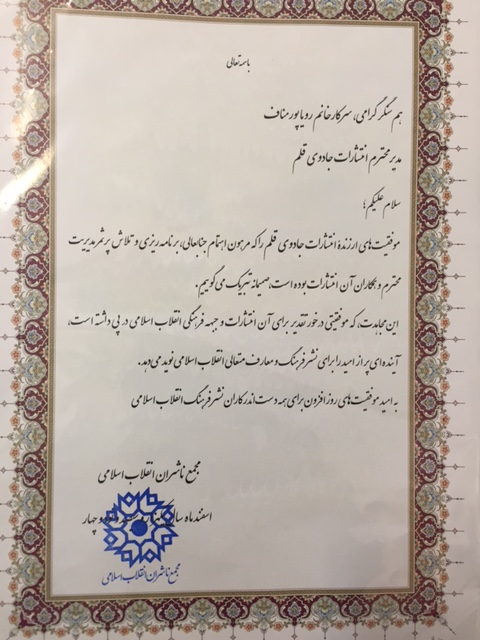 باسمه تعالی
هم سنگر گرامی، سرکار خانم رویا پور مناف
مدیر محترم انتشارات جادوی قلم
سلام علیکم؛
موفقیت‌های ارزندهٔ انتشارات جادوی قلم را که مرهون اهتمام جنابعالی، برنامه‌ریزی و تلاش پرثمر مدیریت
محترم و همکاران آن انتشارات بوده است، صمیمانه تبریک می‌گوییم.
این مجاهدت، که موفقیتی درخور تقدیر برای آن انتشارات و جبهه فرهنگی انقلاب اسلامی در پی داشته است،
آینده‌ای پر از امید را برای نشر فرهنگ و معارف متعالی انقلاب اسلامی نوید می‌دهد.
به امید موفقیت‌های روزافزون برای همه دست‌اندرکاران نشر فرهنگ انقلاب اسلامی
مجمع ناشران انقلاب اسلامی
اسفندماه سال یکهزار و سیصد و نود و چهار
مجمع ناشران انقلاب اسلامی